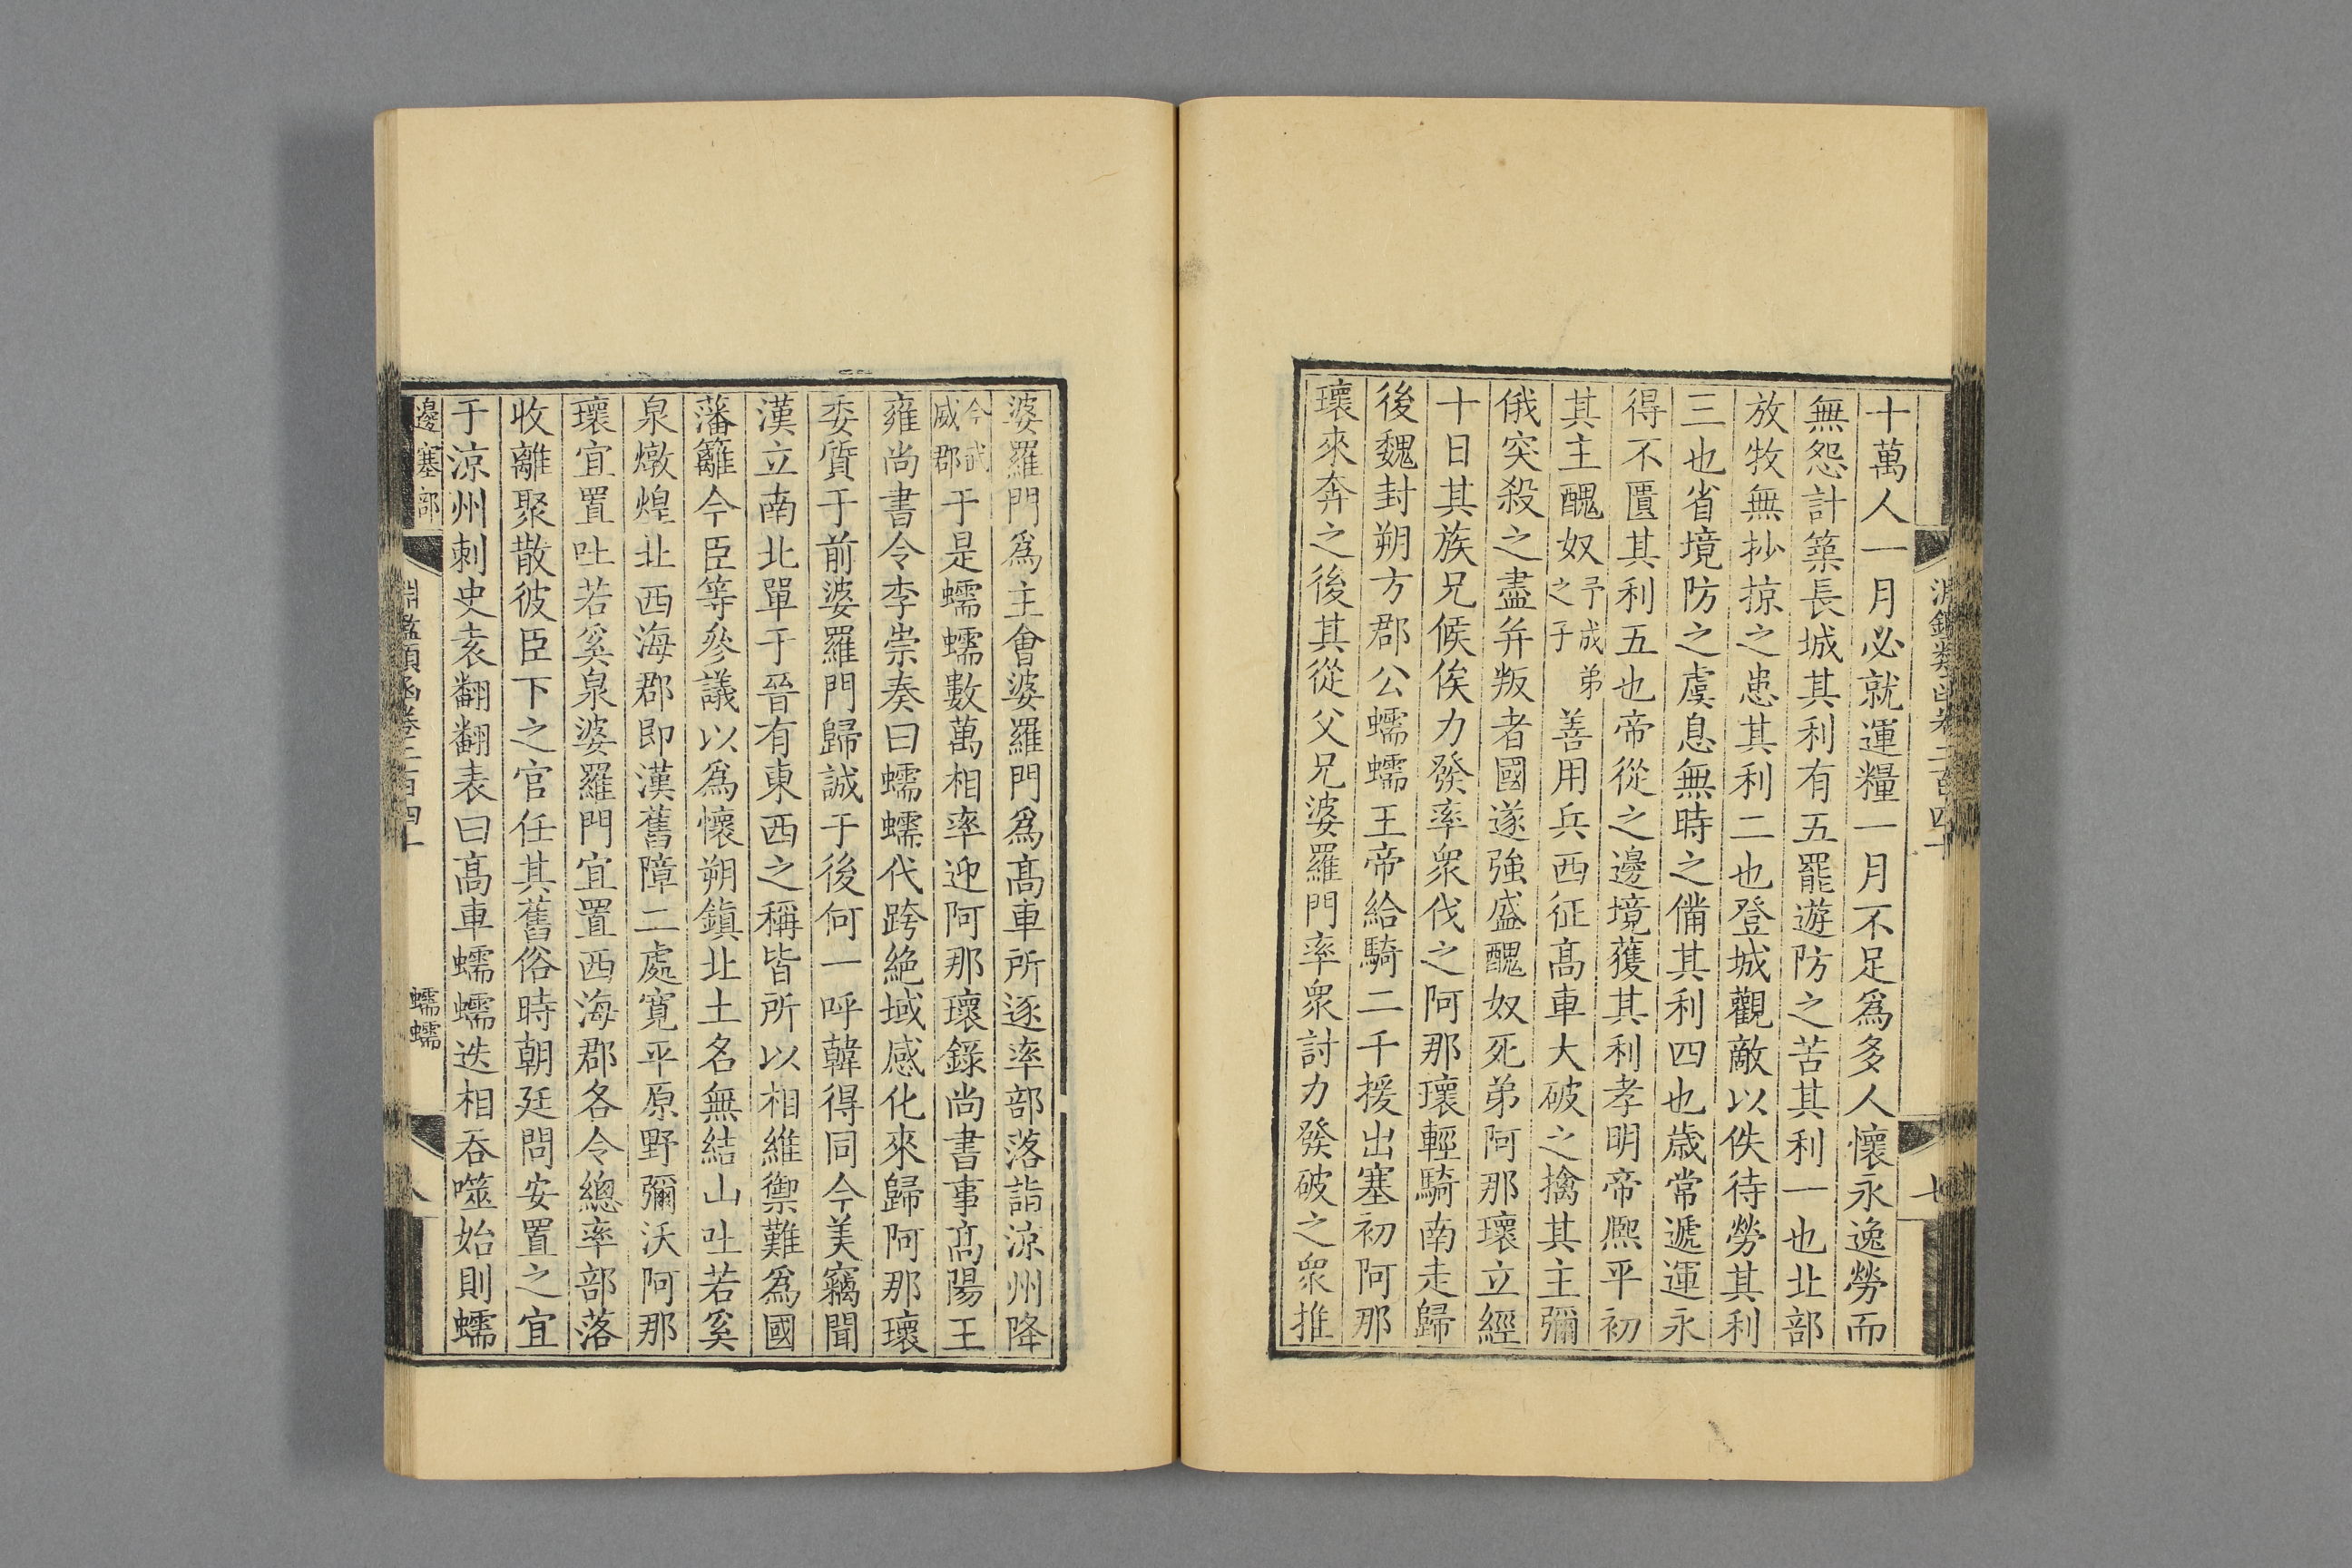 淵鑑類函卷二百四十
七
十萬人一月必就運糧一月不足爲多人懷永逸勞而
無怨計築長城其利有五罷遊防之苦其利一也北部
放牧無抄掠之患其利二也登城觀敵以佚待勞其利
三也省境防之虞息無時之備其利四也歲常遞運永
得不匱其利五也帝從之邊境獲其利孝明帝熈平初
其主醜奴予成弟之子善用兵西征高車大破之擒其主彌
俄突殺之盡并叛者國遂強盛醜奴死弟阿那瓌立經
十日其族兄俟俟力發率衆伐之阿那瓌輕騎南走歸
後魏封朔方郡公蠕蠕王帝給騎二千援出塞初阿那
瓌來奔之後其從父兄婆羅門率衆討力發破之衆推
婆羅門爲主會婆羅門爲高車所逐率部落詣涼州降
今武威郡于是蠕蠕數萬相率迎阿那瓌錄尚書事高陽王
雍尚書令李崇奏曰蠕蠕代跨絶域感化來歸阿那瓌
委質于前婆羅門歸誠于後何一呼韓得同今美竊聞
漢立南北單于晉有東西之稱皆所以相維禦難爲國
藩籬今臣等參議以爲懷朔鎮北土名無結山吐若奚
泉燉煌北西海郡即漢舊障二處寛平原野彌沃阿那
瓌宜置吐若奚泉婆羅門宜置西海郡各令總率部落
收離聚散彼臣下之官任其舊俗時朝廷問安置之宜
于涼州刺史袁翻翻表曰高車蠕蠕迭相吞噬始則蠕
邊塞部
淵鑑類函卷二百四十
蠕蠕
八